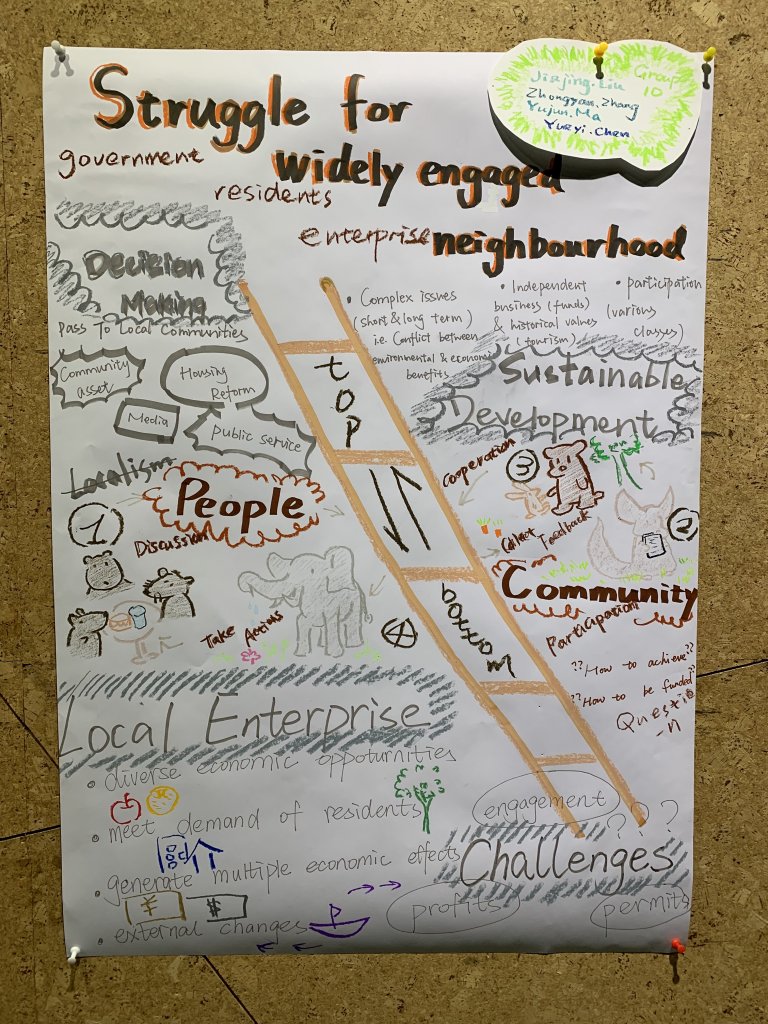 Struggle for
widely engaged
neighbourhood
government
residents
enterprise
Group
10
Jiajing.Liu
Zhongyan.Zhang
Yujun.Ma
Yueyi.Chen
Decision
Making
Pass To Local Communities
Community
asset
Housing
Reform
Media
public service
Localism
People
• Complex issues
(short & long term)
i.e. Conflict between
environmental & economic
benefits
• Independent
business (funds)
& historical values
(tourism)
• participation
(various
classes)
Sustainable
Development
top
bottom
1
Discussion
Take Actions
4
Cooperation
3
Collect Feedback
2
Community
Participation
??How to achieve??
??How to be funded??
Questio
-n
Local Enterprise
• diverse economic oppoturnities
• meet demand of residents
• generate multiple economic effects
¥ $
• external changes
engagement
? ? ?
Challenges
profits
permits